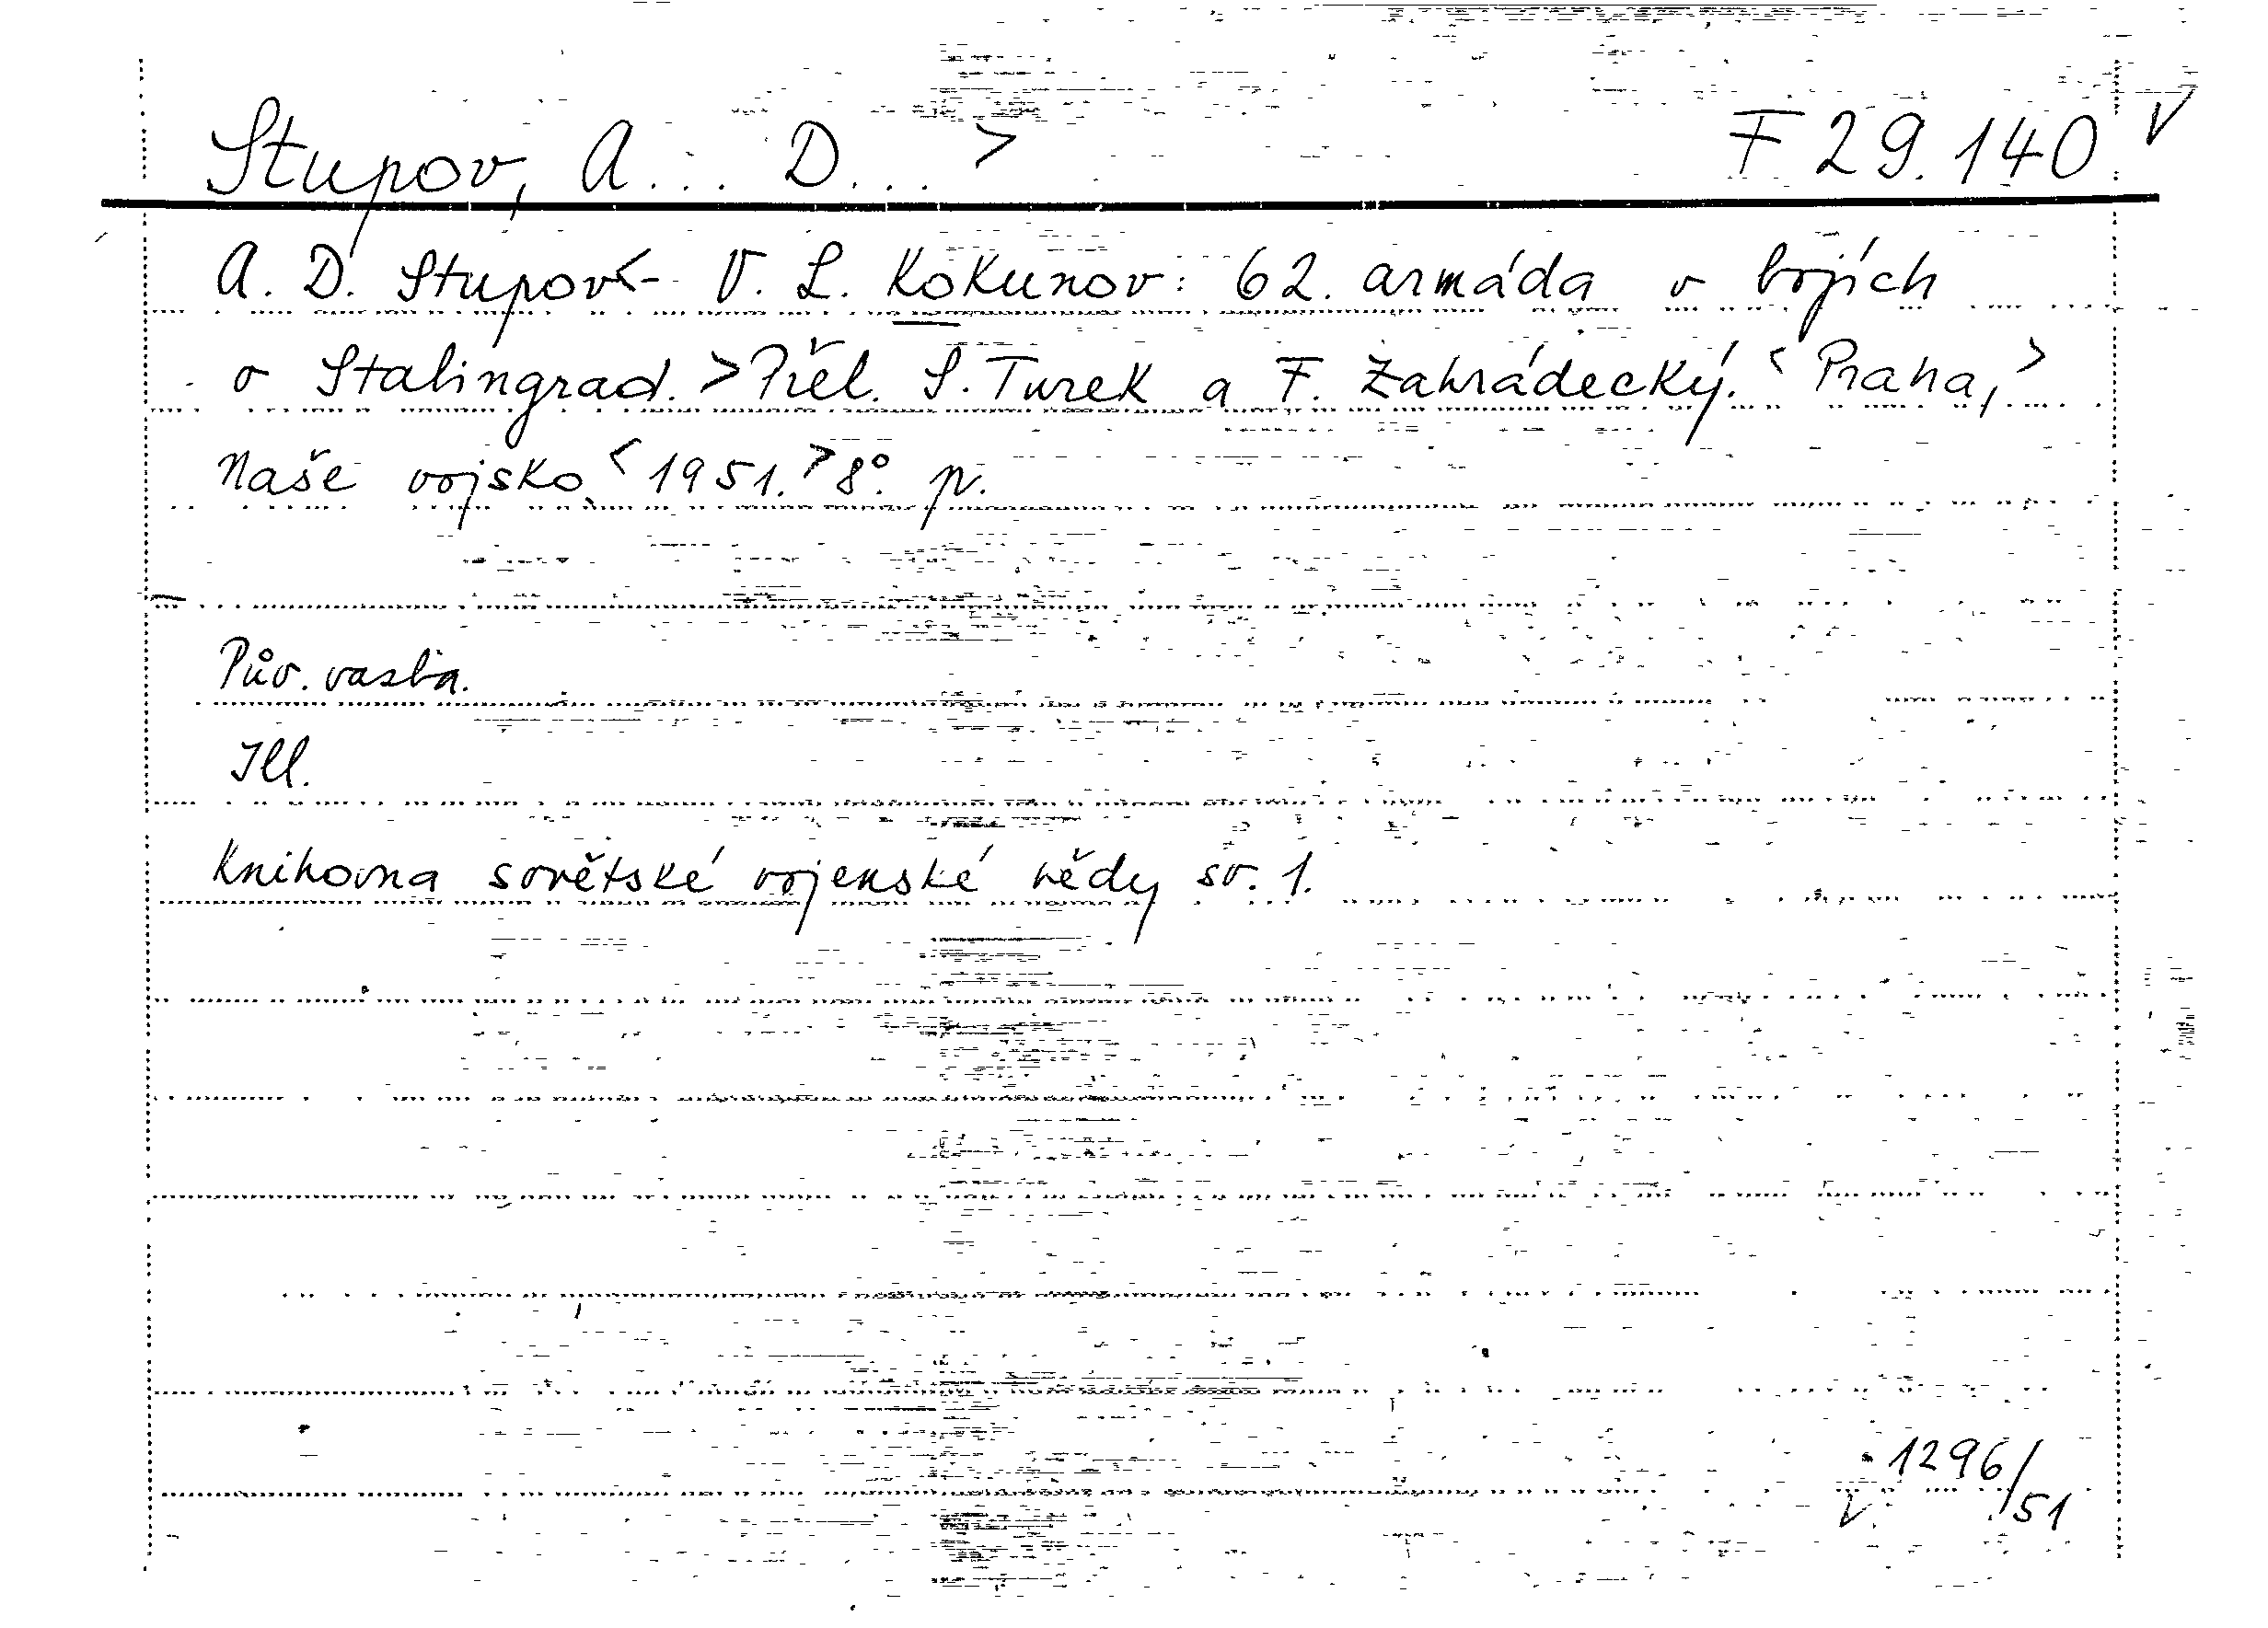 Stupov, A... D... > F 29.140 V
A. D. Stupov <- V. L. Kokunov: 62. armáda v bojích
o Stalingrad. > Přel. S. Turek a F. Zahrádecký. < Praha, >
Naše vojsko < 1951. > 8°. p.
Pův. vazba.
Ill.
Knihovna sovětské vojenské vědy sv. 1.
1296/51
V.